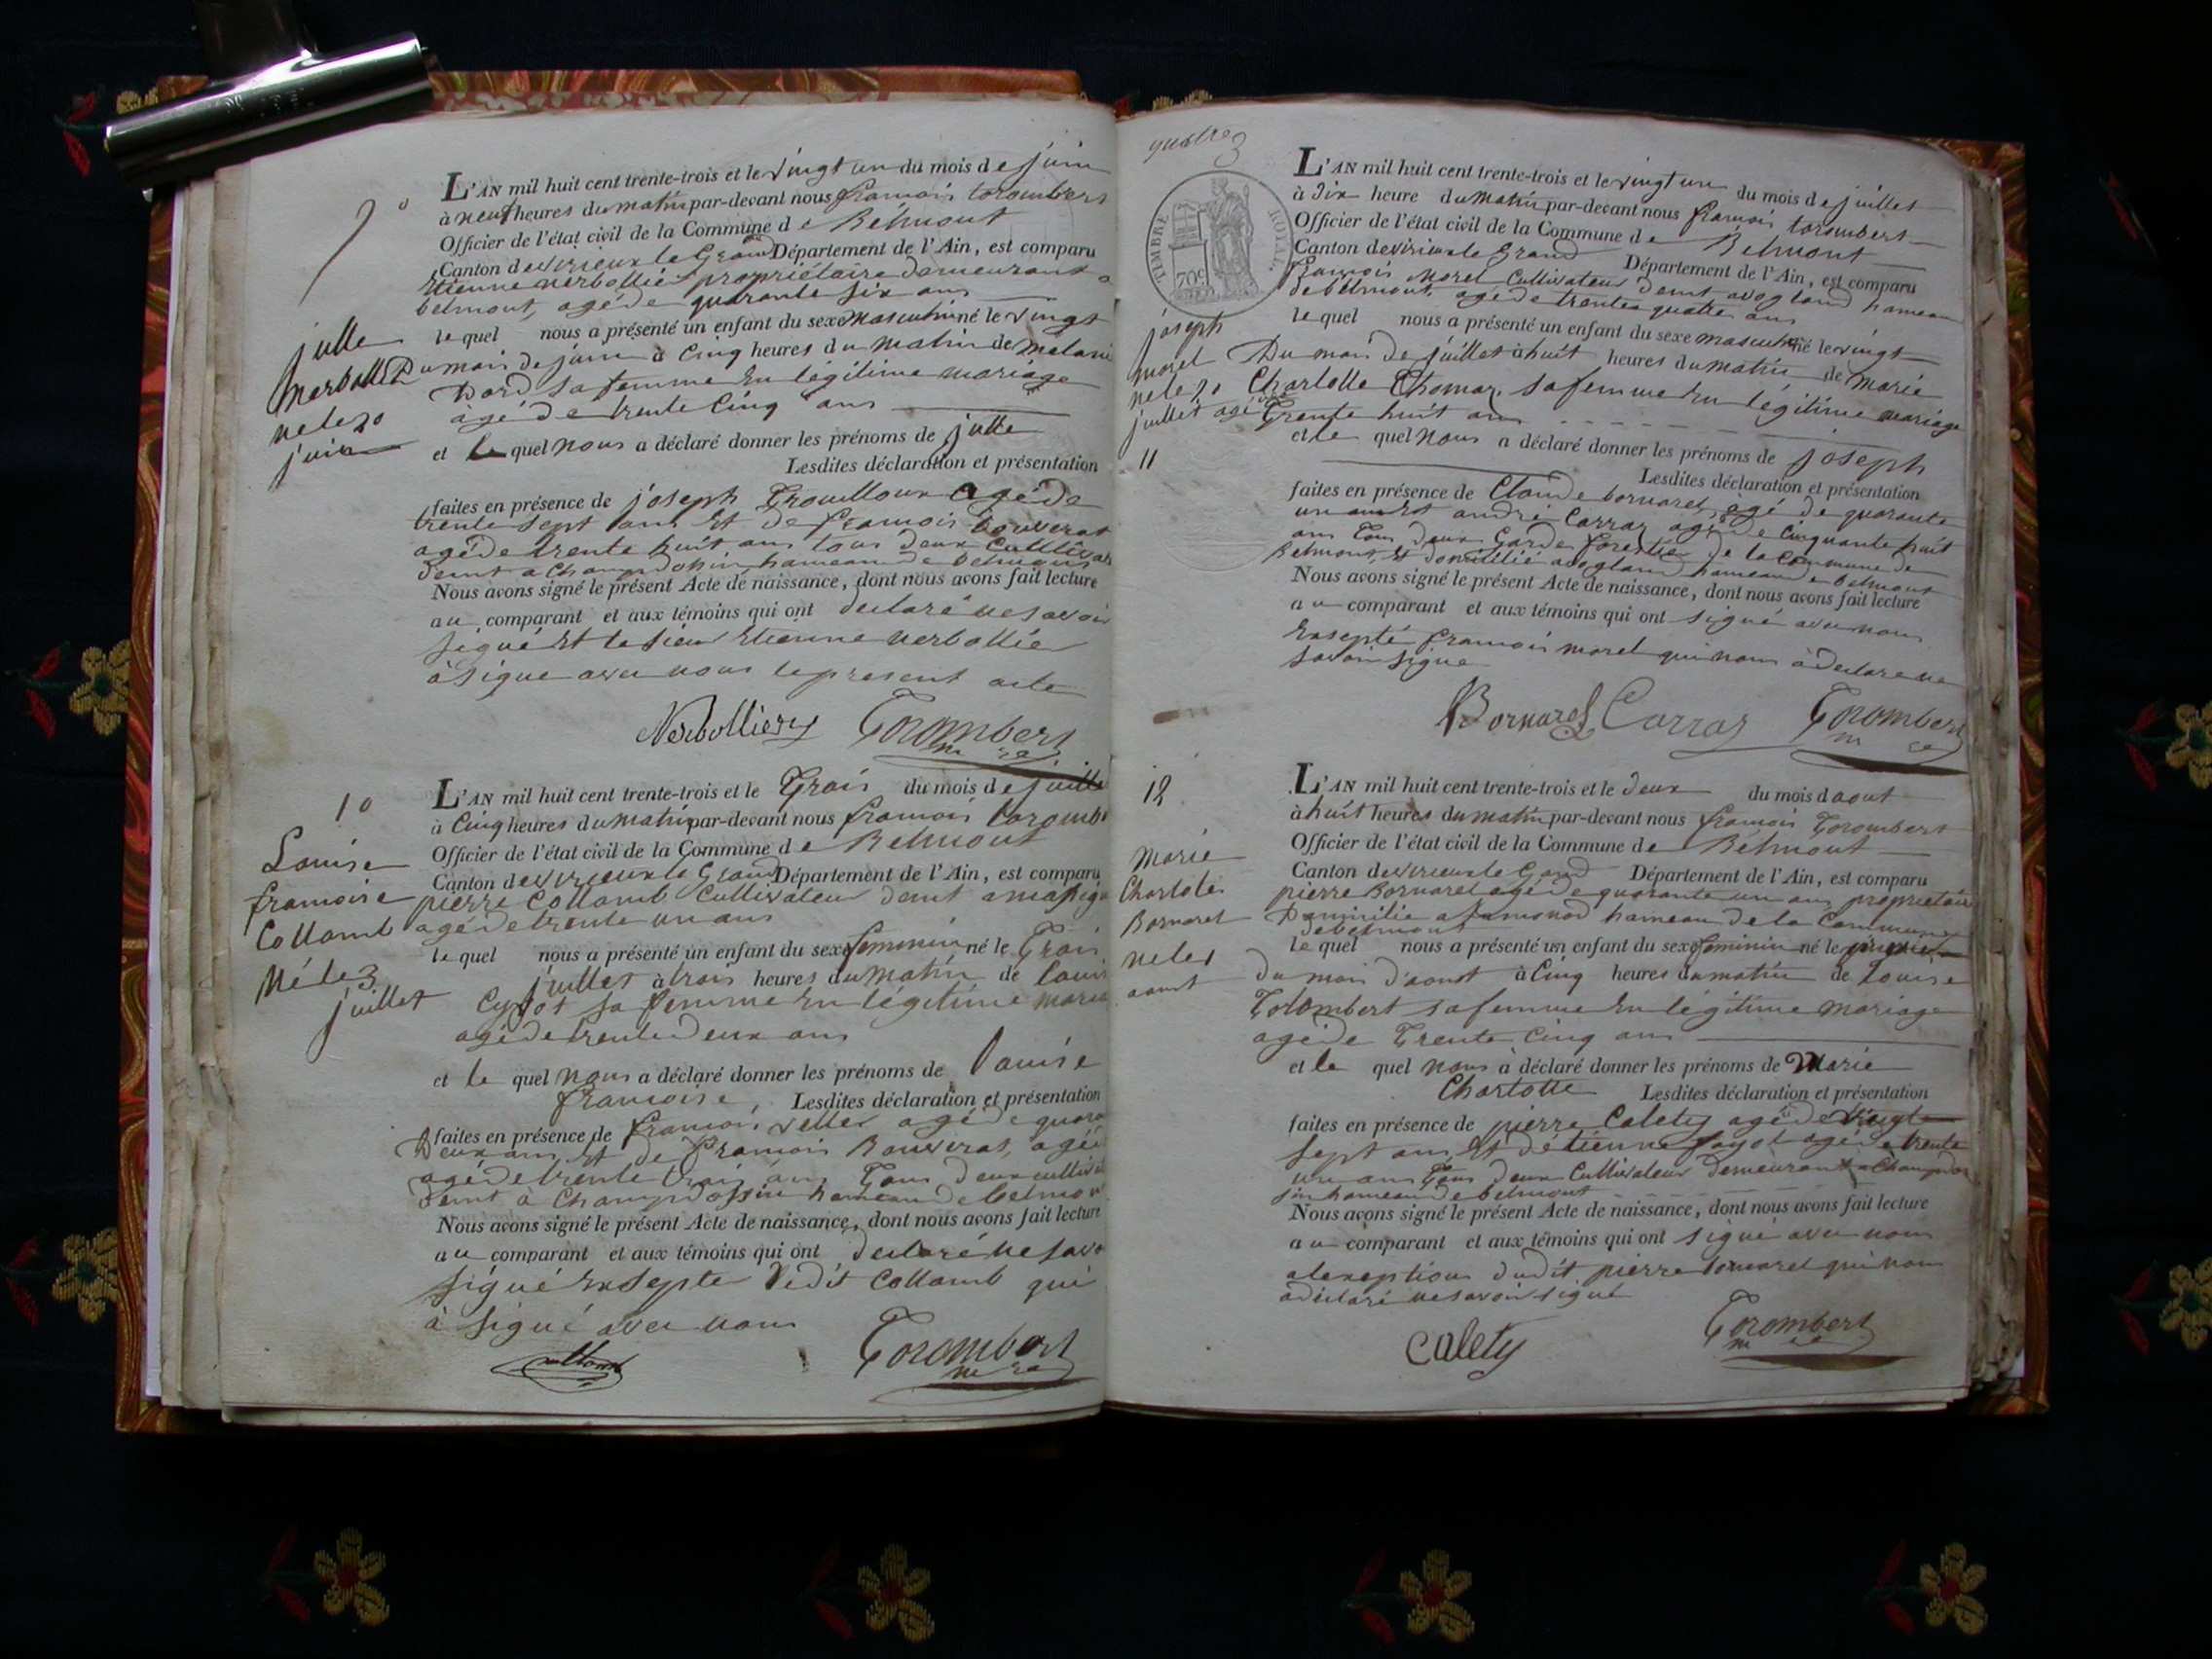 9
julle
Nerbollier
ne le 20
juin
L'AN mil huit cent trente-trois et le vingt un du mois de juin
à neuf heures du matin par-devant nous francois torombert
Officier de l'état civil de la Commune de Belmont
Canton de virieux le Grand Département de l'Ain, est comparu
Etienne nerbollier propriétaire demeurant a
belmont, agé de quarante six ans
le quel nous a présenté un enfant du sexe masculin né le vingt
Du mois de juin à Cinq heures du matin de melanie
Dord sa femme En legitime mariage
àgé de trente Cinq ans
et le quel nous a déclaré donner les prénoms de julle
Lesdites déclaration et présentation
faites en présence de joseph Trouilloux agé de
trente sept ans Et de francois bouverat
agé de trente huit ans tous deux Cultivat
demt a Champdossin hameau de belmont
Nous avons signé le présent Acte de naissance, dont nous avons fait lecture
au comparant et aux témoins qui ont declaré ne savoir
signé Et le sieur Etienne nerbollier
à signe avec nous le present acte
Nerbollier Torombert
10
Louise
francoise
Collomb
Né le 3
juillet
L'AN mil huit cent trente-trois et le Trois du mois de juillet
à Cinq heures du matin par-devant nous francois torombe
Officier de l'état civil de la Commune de Belmont
Canton de virieux le Grand Département de l'Ain, est comparu
pierre Collomb Cultivateur demt a
agé de trente un ans
le quel nous a présenté un enfant du sexe feminin né le Trois
juillet à trois heures du matin de Louis
sa femme En légitime maria
agé de trente deux ans
et le quel nous a déclaré donner les prénoms de Louise
francoise, Lesdites déclaration et présentation
faites en présence de francois vettier agé de quara
Deux ans Et de francois Bouverat, agé
agé de trente trois ans Tous deux cultivat
demt à Champdossin hameau de belmon
Nous avons signé le présent Acte de naissance, dont nous avons fait lecture
au comparant et aux témoins qui ont declaré ne savo
signé Exsepte Ledit Collomb qui
à signé avec nous
Collomb Torombert
quatre 3
TIMBRE ROYAL
70c
joseph
morel
ne le 20
juillet
11
L'AN mil huit cent trente-trois et le vingt un du mois de juillet
à dix heure du matin par-devant nous francois torombert
Officier de l'état civil de la Commune de Belmont
Canton de virieu le Grand Département de l'Ain, est comparu
francois morel Cultivateur demt avogland hameau
de belmont, agé de trente quatre ans
le quel nous a présenté un enfant du sexe masculin né le vingt
Du mois de juillet à huit heures du matin de marie
Charlotte Chomaz sa femme En légitime mariage
agé de Trente huit ans
et le quel nous a déclaré donner les prénoms de joseph
Lesdites déclaration et présentation
faites en présence de Claude bornarel, agé de quarante
un ans Et andré Carraz agé de Cinquante huit
ans Tous deux Garde forestier de la Commune de
Belmont, Et domicilié avogland hameau de belmont
Nous avons signé le présent Acte de naissance, dont nous avons fait lecture
au comparant et aux témoins qui ont signé avec nous
Exsepté francois morel qui nous à declare ne
savoir signe
Bornarel Carraz Torombert
12
Marie
Charlote
Bornarel
ne le 1
aout
L'AN mil huit cent trente-trois et le deux du mois d aout
à huit heures du matin par-devant nous francois Torombert
Officier de l'état civil de la Commune de Belmont
Canton de virieux le Grand Département de l'Ain, est comparu
pierre Bornarel agé de quarante un ans propriétaire
Domicilié a hameau de la Commune
de belmont
le quel nous a présenté un enfant du sexe feminin né le premier
du mois d'aout à Cinq heures du matin de Louise
Torombert sa femme En légitime mariage
agé de Trente Cinq ans
et le quel nous à déclaré donner les prénoms de Marie
Charlotte Lesdites déclaration et présentation
faites en présence de pierre Calety agé de vingt
sept ans Et d'étienne fayot agé de trente
un ans Tous deux Cultivateur demeurant a Champdos
sin hameau de belmont
Nous avons signé le présent Acte de naissance, dont nous avons fait lecture
au comparant et aux témoins qui ont signé avec nous
alexeption dudit pierre bornarel qui nous
a déclaré ne savoir signé
Calety Torombert